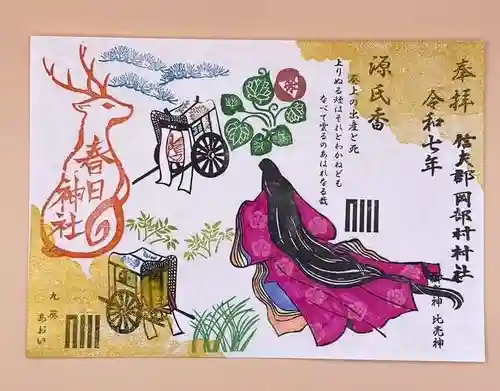 奉拝
令和七年
信夫郡岡部村村社
比売神
源氏香
葵上の出産と死
上りぬる煙はそれとわかねども
なべて雲ゐのあはれなる哉
春日
神社
九 葵
あおい